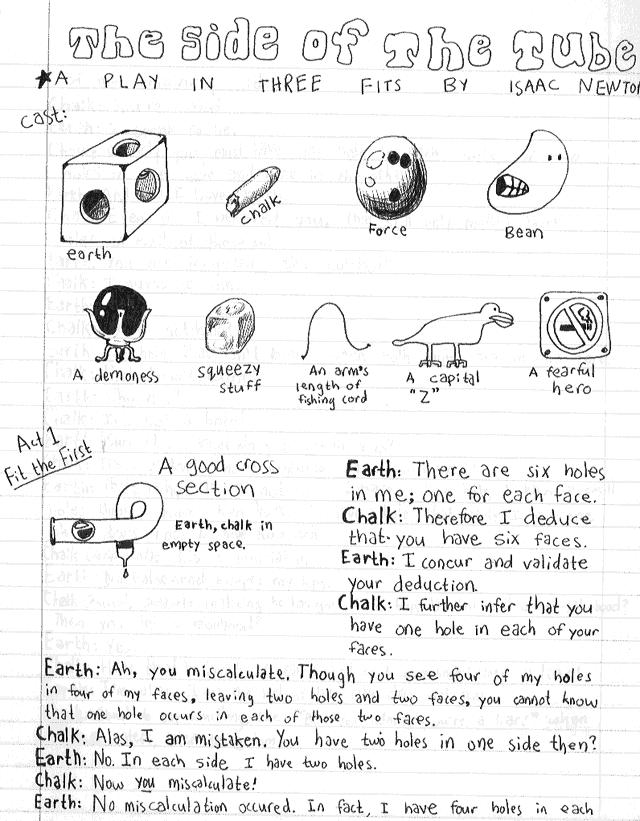 The Side of The Tube
★A PLAY IN THREE FITS BY ISAAC NEWTON
Cast:
earth
chalk
Force
Bean
A demoness
squeezy
stuff
An arm's
length of
fishing cord
A capital
"Z"
A fearful
hero
Act 1
Fit the First
A good cross
section
Earth, chalk in
empty space.
Earth: There are six holes
in me; one for each face.
Chalk: Therefore I deduce
that you have six faces.
Earth: I concur and validate
your deduction.
Chalk: I further infer that you
have one hole in each of your
faces.
Earth: Ah, you miscalculate. Though you see four of my holes
in four of my faces, leaving two holes and two faces, you cannot know
that one hole occurs in each of those two faces.
Chalk: Alas, I am mistaken. You have two holes in one side then?
Earth: No. In each side I have two holes.
Chalk: Now you miscalculate!
Earth: No miscalculation occured. In fact, I have four holes in each